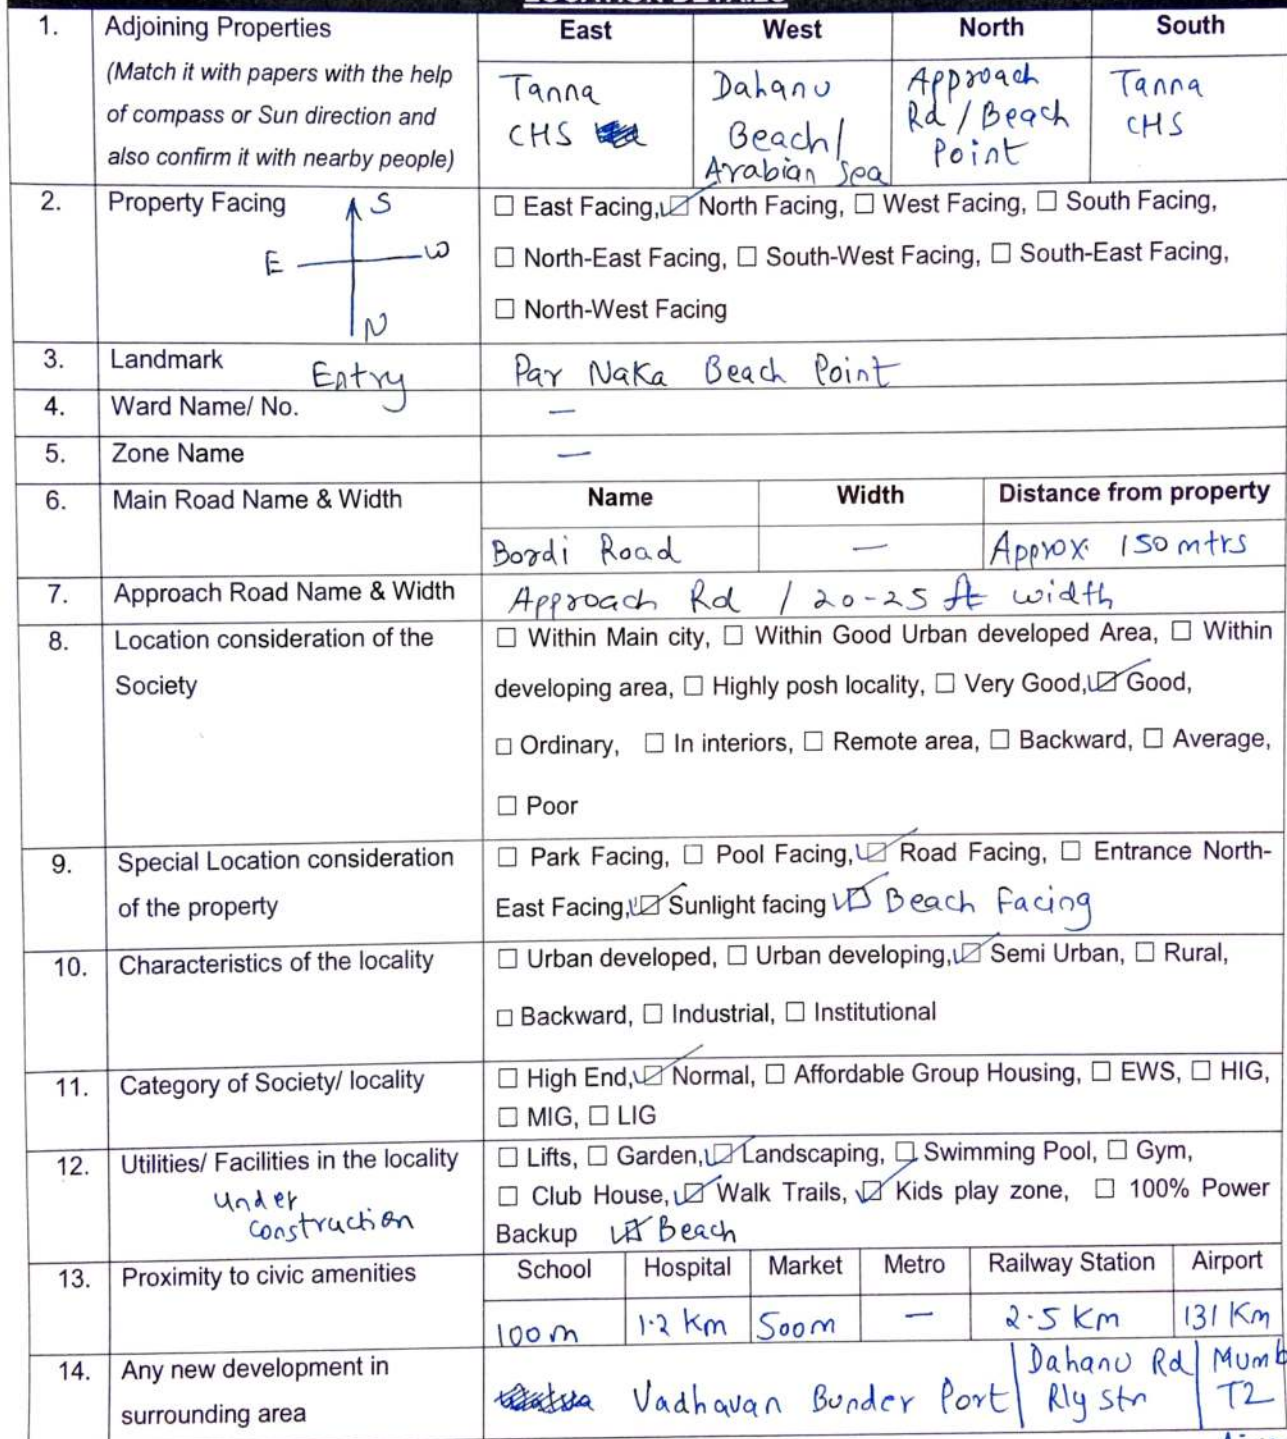 LOCATION DETAILS
1. Adjoining Properties East West North South
(Match it with papers with the help
of compass or Sun direction and
also confirm it with nearby people)
Tanna
CHS
Dahanu
Beach/
Arabian Sea
Approach
Rd / Beach
Point
Tanna
CHS
2. Property Facing
S
E W
N
Entry
☐ East Facing, ☑ North Facing, ☐ West Facing, ☐ South Facing,
☐ North-East Facing, ☐ South-West Facing, ☐ South-East Facing,
☐ North-West Facing
3. Landmark Par Naka Beach Point
4. Ward Name/ No. —
5. Zone Name —
6. Main Road Name & Width Name Width Distance from property
Bordi Road — Approx. 150 mtrs
7. Approach Road Name & Width Approach Rd / 20-25 ft width
8. Location consideration of the
Society
☐ Within Main city, ☐ Within Good Urban developed Area, ☐ Within
developing area, ☐ Highly posh locality, ☐ Very Good, ☑ Good,
☐ Ordinary, ☐ In interiors, ☐ Remote area, ☐ Backward, ☐ Average,
☐ Poor
9. Special Location consideration
of the property
☐ Park Facing, ☐ Pool Facing, ☑ Road Facing, ☐ Entrance North-
East Facing, ☑ Sunlight facing ☑ Beach Facing
10. Characteristics of the locality
☐ Urban developed, ☐ Urban developing, ☑ Semi Urban, ☐ Rural,
☐ Backward, ☐ Industrial, ☐ Institutional
11. Category of Society/ locality
☐ High End, ☑ Normal, ☐ Affordable Group Housing, ☐ EWS, ☐ HIG,
☐ MIG, ☐ LIG
12. Utilities/ Facilities in the locality
Under
construction
☐ Lifts, ☐ Garden, ☑ Landscaping, ☐ Swimming Pool, ☐ Gym,
☐ Club House, ☑ Walk Trails, ☑ Kids play zone, ☐ 100% Power
Backup ☑ Beach
13. Proximity to civic amenities School Hospital Market Metro Railway Station Airport
100 m 1.2 Km 500m — 2.5 Km 131 Km
Dahanu Rd
Rly Stn
Mumb
T2
14. Any new development in
surrounding area
Vadhavan Bunder Port